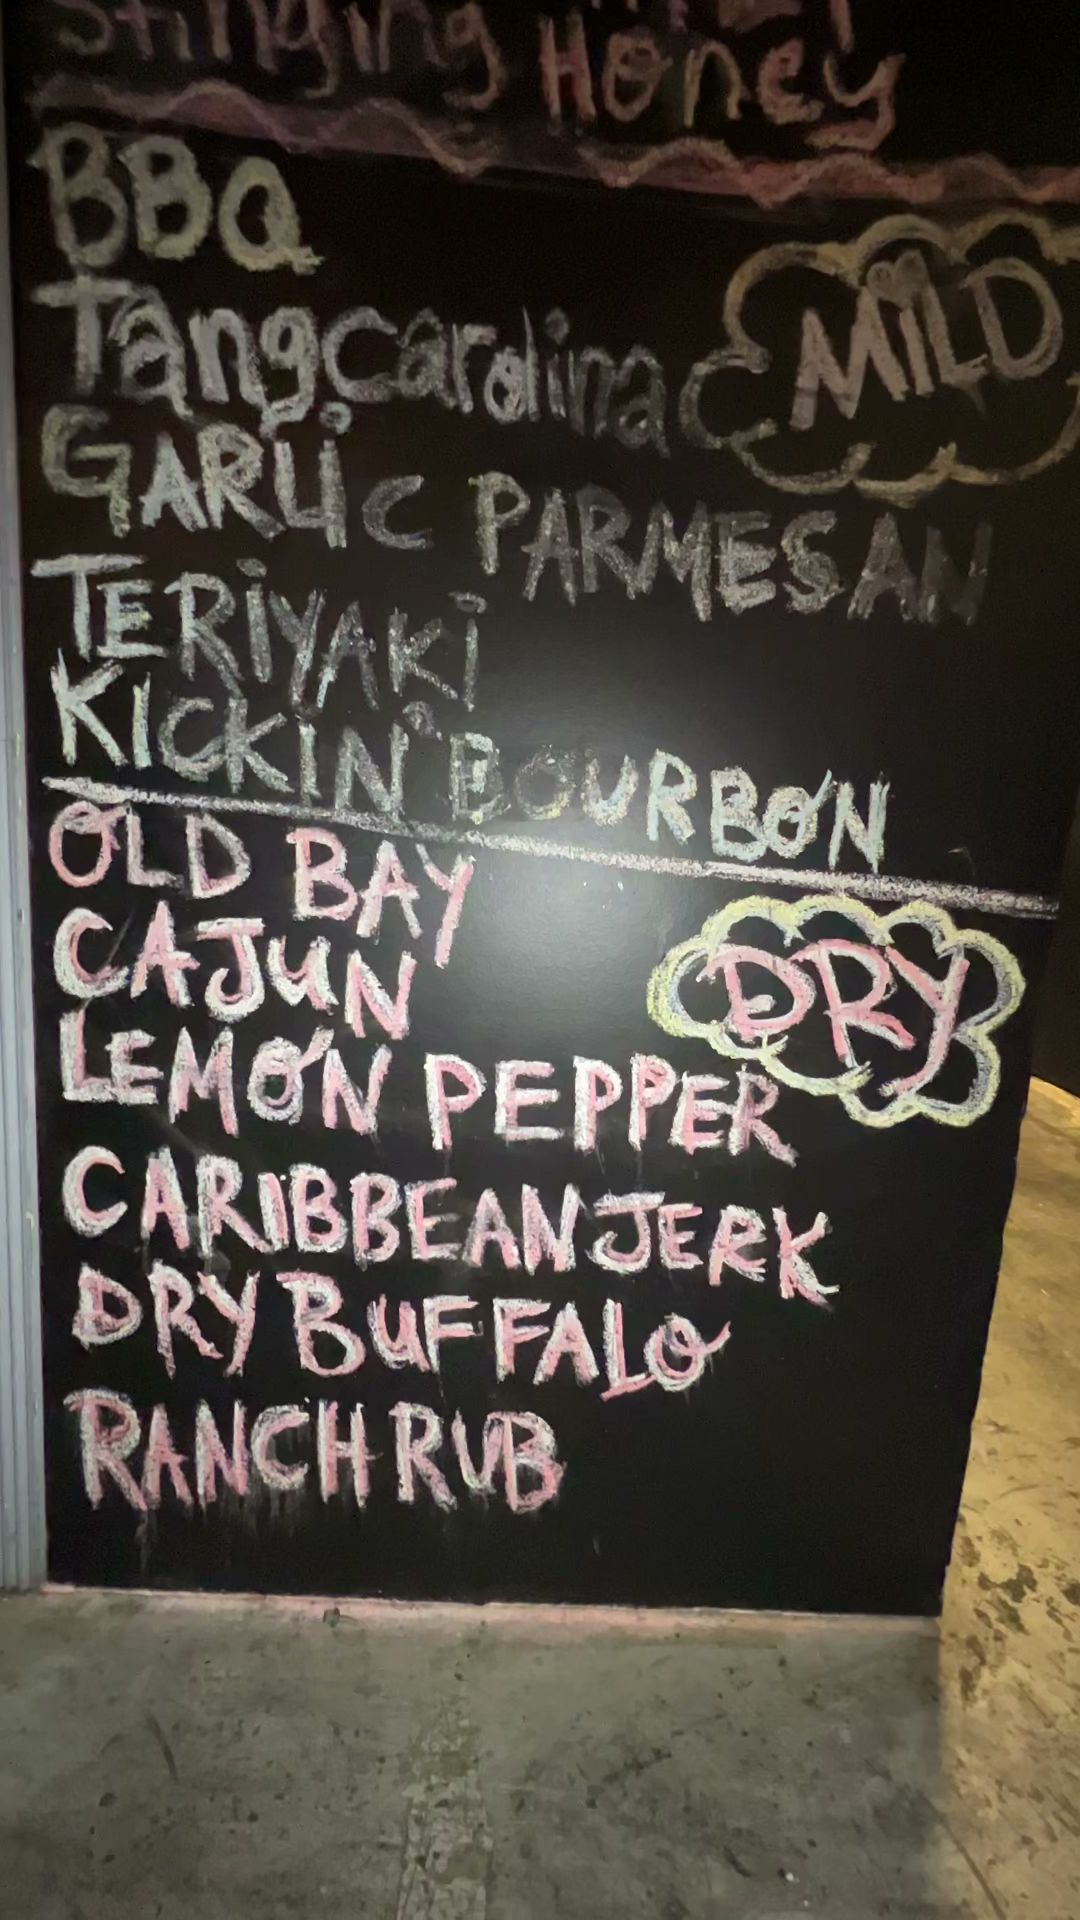 Stinging Honey
BBQ
Tangcarolina
MILD
GARLIC PARMESAN
TERiYAKi
KICKIN' BOURBON
OLD BAY
CAJUN
DRY
LEMON PEPPER
CARIBBEAN JERK
DRY BUFFALO
RANCH RUB